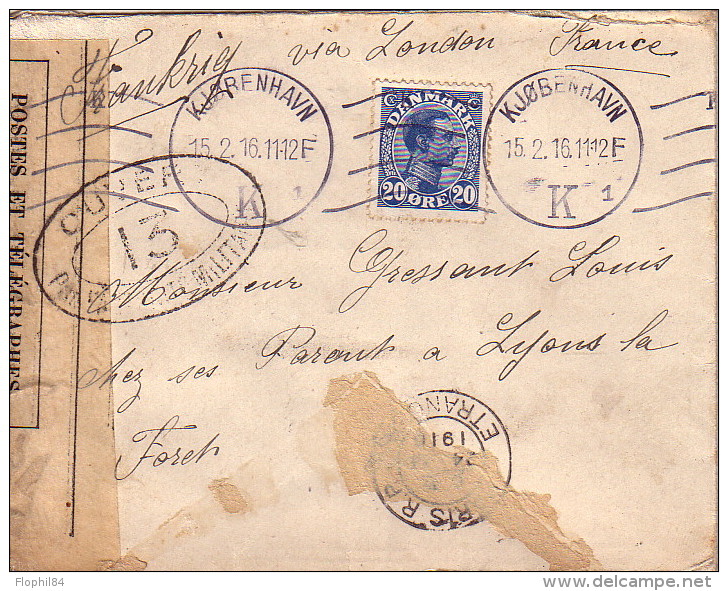 Frankrig via London France
KJØBENHAVN
15.2.16.11-12F
K 1
DANMARK
20 ØRE 20
KJØBENHAVN
15.2.16.11-12F
K 1
POSTES ET TELEGRAPHES
OUVERT
13
MILITAIRE
Monsieur Gressant Louis
chez ses Parant a Lyons la
Foret
ETRANG
1916
RIS R.P.
Flophil84
www.delcampe.net